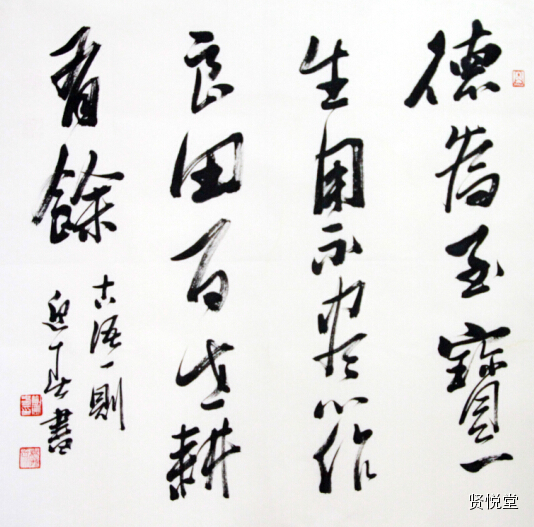 德為至寶一
生用不盡心作
良田百世耕
有餘
古語一則
書
贤悦堂